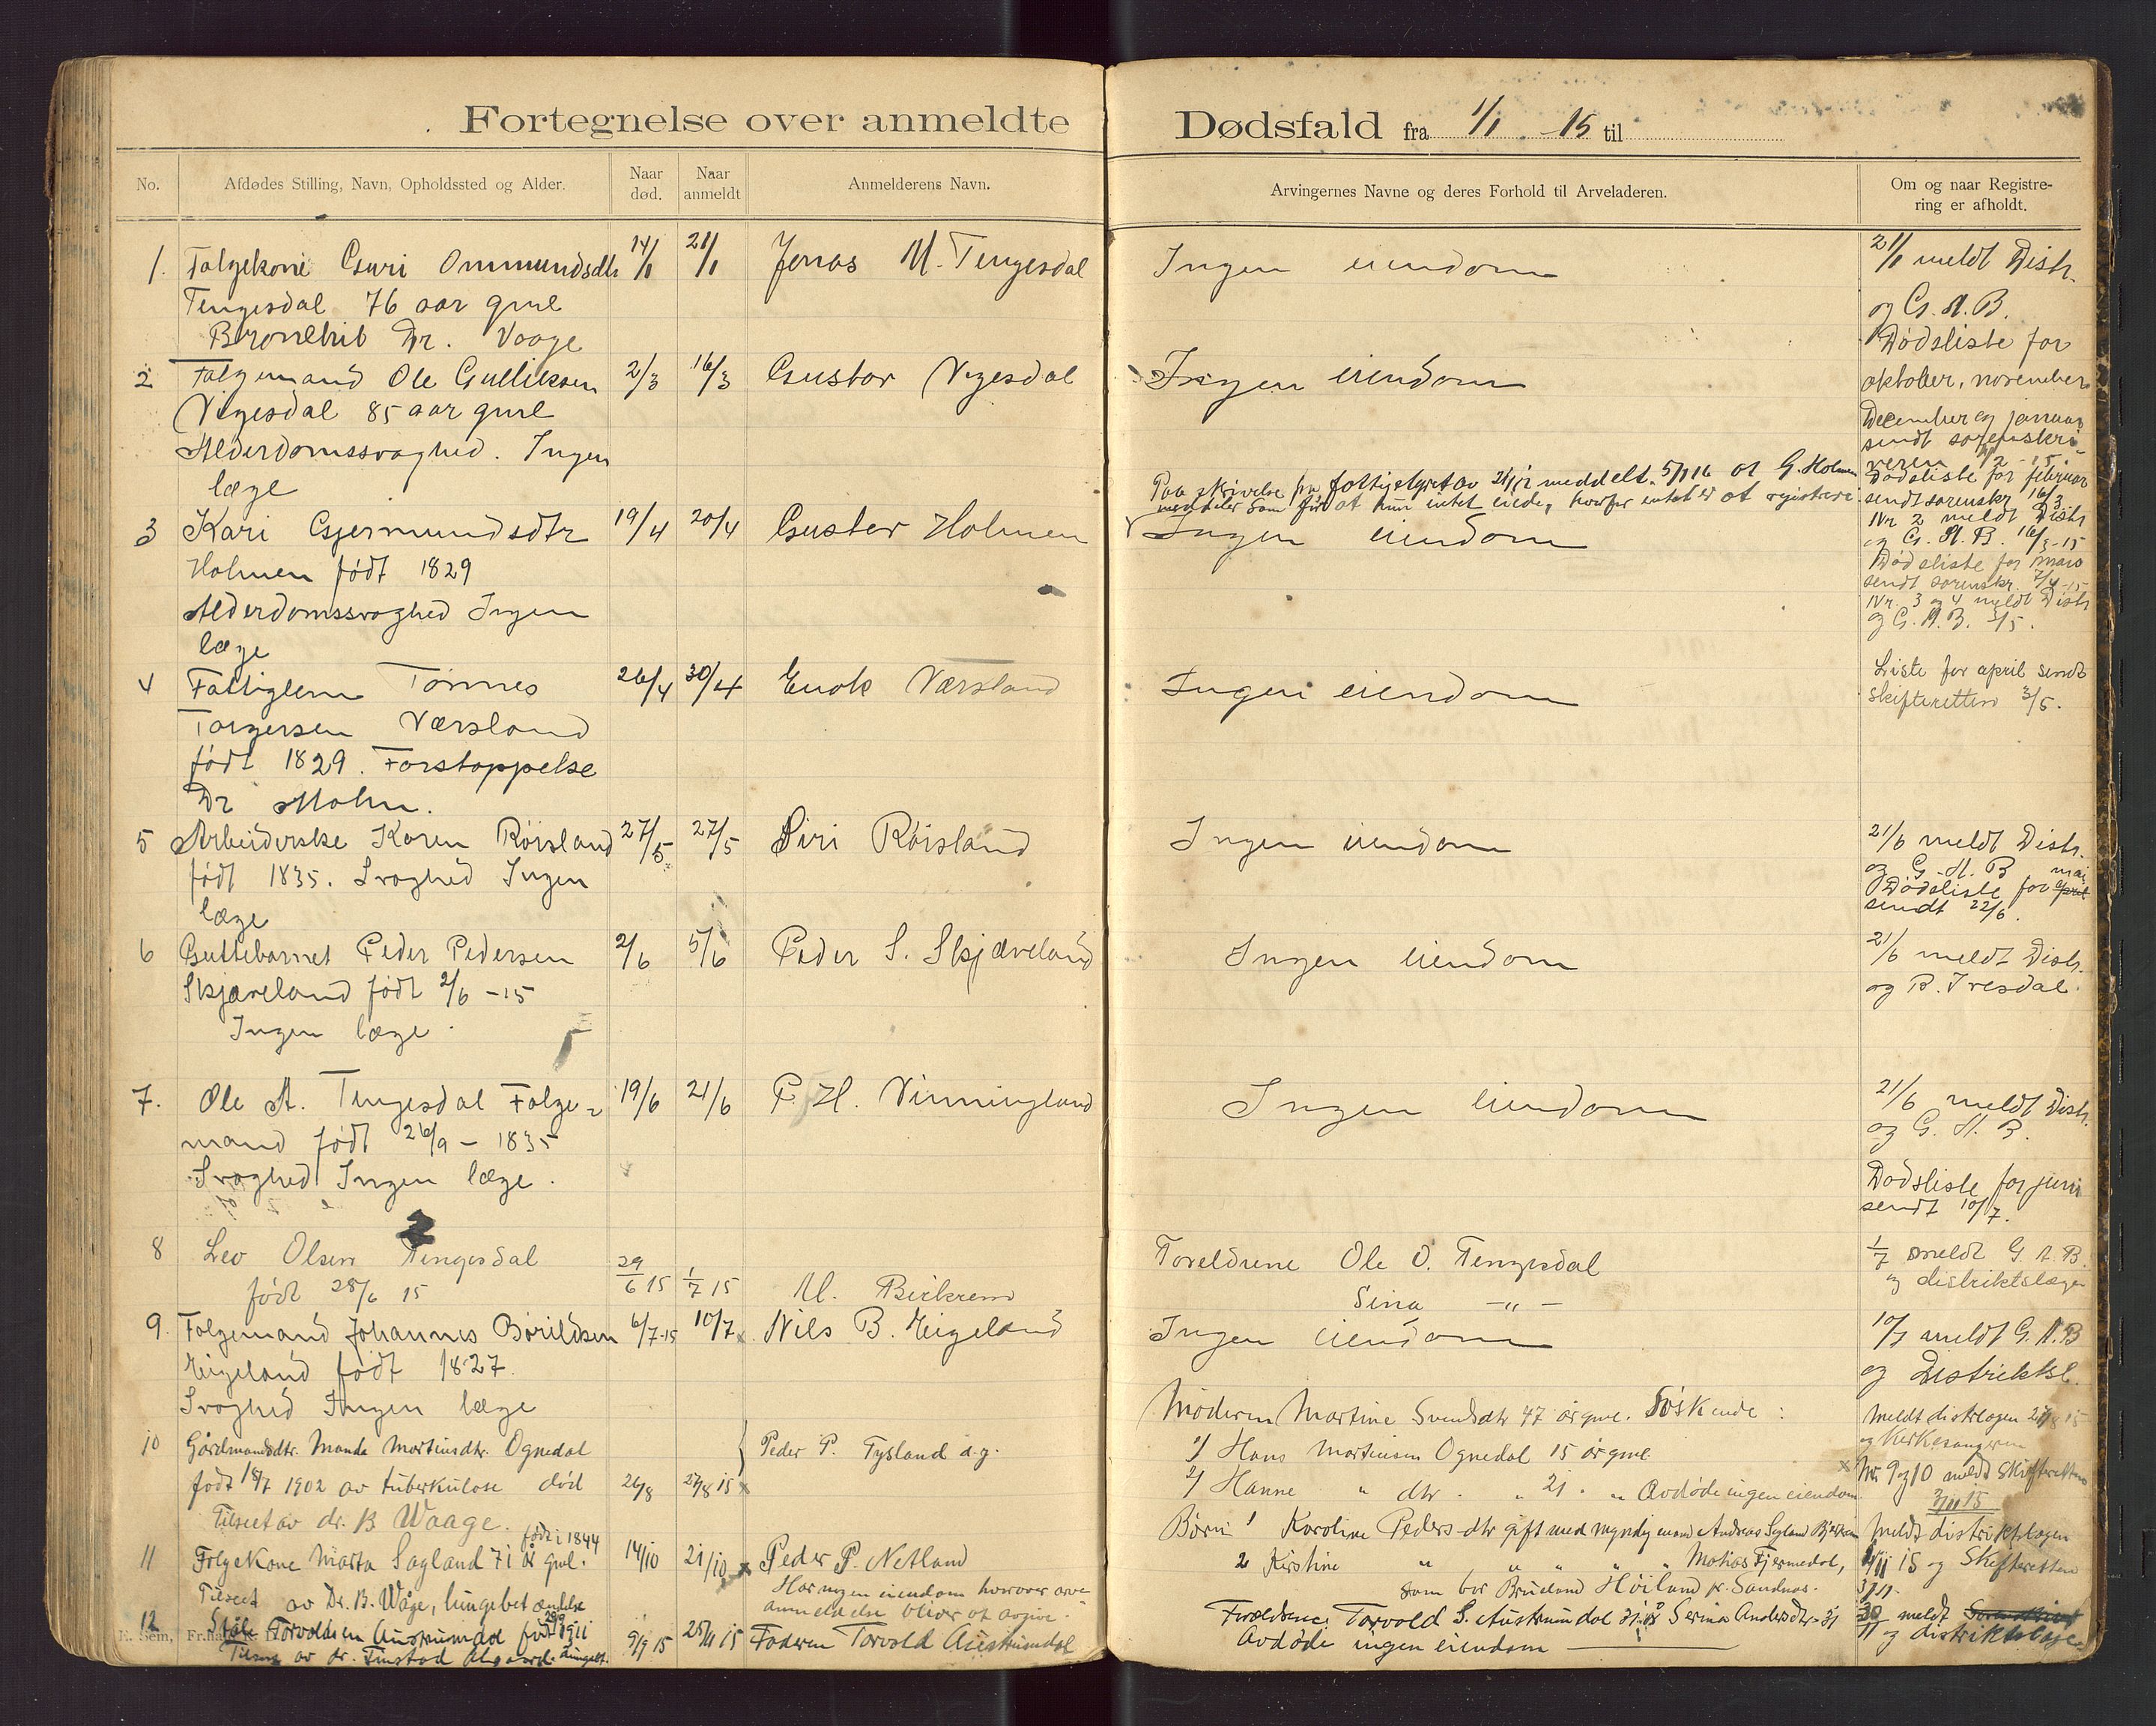 Fortegnelse over anmeldte Dødsfald fra 1/1 -15 til
No.
Afdødes Stilling, Navn, Opholdssted og Alder.
Naar død.
Naar anmeldt
Anmelderens Navn.
Arvingernes Navne og deres Forhold til Arveladeren.
Om og naar Registrering er afholdt.
1. Følgekone Guri Ommundsdtr 14/1 21/1 Jonas M. Tengesdal Ingen eiendom 21/1 meldt Distr.
Tengesdal 76 aar gml og G. A. B.
Dr. Vaage Dødsliste for
2 Følgemand Ole Gulliksen 2/3 16/3 Gustav Vegesdal Ingen eiendom oktober, november
Vegesdal 85 aar gml December og januar
Alderdomssvaghed. Ingen sendt sorenskri-
læge veren 2-15.
Dødsliste for februar
Paa skrivelse fra fattigstyret av meddelt 5/1 16 at G. Holmen
sendt sorenskr 16/3
at hun intet eiede, hvorfor intet er at registrere.
3 Kari Gjermundsdtr 19/4 20/4 Gustav Holmen Ingen eiendom Nr 2 meldt Distr
Holmen født 1829 og G. A. B. 16/3-15
Alderdomssvaghed Ingen Dødsliste for mars
læge sendt sorenskr. 2/4-15
Nr. 3 og 4 meldt Distr
og G. A. B. 3/5.
4 Fattiglem Tønnes 26/4 30/4 Enok Værsland Ingen eiendom Liste for april sendt
Torgersen Værsland skifteretten 3/5.
født 1829. Forstoppelse
Dr Holm.
5 Arbeiderske Karen Røisland 27/5 27/5 Siri Røisland Ingen eiendom 21/6 meldt Distr.
født 1835. Svaghed Ingen og G. A. B
læge Dødsliste for april mai
sendt 22/6.
6 Guttebarnet Peder Pedersen 2/6 5/6 Peder S. Skjæveland Ingen eiendom 21/6 meldt Distr.
Skjæveland født 2/6 -15 og B. Ivesdal
Ingen læge.
7. Ole A. Tengesdal Følge- 19/6 21/6 P. H. Vinningland Ingen eiendom 21/6 meldt Distr.
mand født 26/9 - 1835 og G. A. B.
Svaghed Ingen læge. Dødsliste for juni
sendt 10/7.
8 Leo Olsen Tengesdal 29/6 15 1/7 15 M. Birkrem Foreldrene Ole O. Tengesdal 1/7 meldt G A. B.
født 28/6 15 Sina -"- og distriktslægen
9. Følgemand Johannes Borildsen 6/7-15 10/7 x Nils B. Eigeland Ingen eiendom 10/7 meldt G. A. B
Eigeland født 1827. og Distriktsl.
Svaghed Ingen læge
Moderen Martine Svendsdtr 47 år gml. Søskende:
10 Gårdmandsdtr. Manda Martinsdtr. Ognedal Peder P. Tysland d.y. 1/ Hans Martinsen Ognedal 15 år gml. meldt distrlægen 27/8 15
og kirkesangeren
født 18/7 1902 av tuberkulose død 26/8 27/8 15 x 2/ Hanne " dtr. " 21 " " Avdøde ingen eiendom x Nr. 9 og 10 meldt Skifteretten
Tilseet av dr. B Vaage. 2/11 15
11 Følgekone Marta Sagland 71 år gml. født i 1844 14/10 21/10 x Peder P. Netland Børn 1 Karoline Pedersdtr gift med myndig mand Andreas Sagland Bjerkrem meldt distriktslægen
Tilseet av Dr. B. Våge, lungebetændelse Har ingen eiendom hvorover arve- 2 Kirstine " " " " Matias Fjermedal, 2/11 15 og Skifteretten
anmeldelse bliver at avgive. som bor Brueland Høiland pr. Sandnes. 3/11.
12 Ståle Torvoldsen Austrumdal født 29/9 1911 9/9 15 25/11 15 Faderen Torvold Austrumdal Forældrene: Torvold S. Austrumdal 31 år Serina Andersdtr. 31 30/11 meldt
Tilseet av dr. Finstad Avdøde ingen eiendom og distriktslægen
E. Sem, Fr.hald.